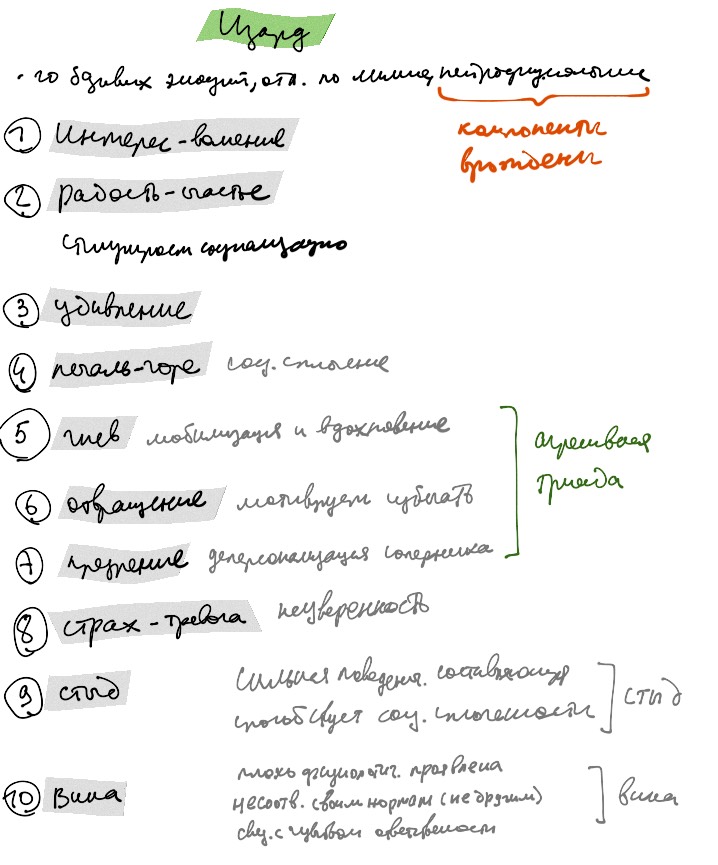 Изард
• 10 базовых эмоций, отл. по мимике, нейрофункционально
компоненты
врождены
1 Интерес-волнение
2 радость-счастье
стимулирует социализацию
3 удивление
4 печаль-горе соц. сплочение
5 гнев мобилизация и вдохновение
6 отвращение мотивирует избегать
7 презрение деперсонализация соперника
агрессивная
триада
8 страх-тревога неуверенность
9 стыд сильная поведенч. составляющая
способствует соц. сплоченности
стыд
10 Вина плохо физиологич. проявлена
несоотв. своим нормам (не другим)
связ. с чувством ответственности
вина